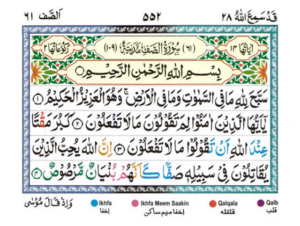 قَدْ سَمِعَ اللّٰهُ ٢٨ ٥٥٢ اَلصَّف ٦١
اٰيَاتُهَا ١٤ (٦١) سُوْرَةُ الصَّفِّ مَدَنِيَّةٌ (١٠٩) رُكُوْعَاتُهَا ٢
بِسْمِ اللّٰهِ الرَّحْمٰنِ الرَّحِيْمِ
سَبَّحَ لِلّٰهِ مَا فِي السَّمٰوٰتِ وَمَا فِي الْاَرْضِ ۚ وَهُوَ الْعَزِيْزُ الْحَكِيْمُ ١
يٰٓاَيُّهَا الَّذِيْنَ اٰمَنُوْا لِمَ تَقُوْلُوْنَ مَا لَا تَفْعَلُوْنَ ٢ كَبُرَ مَقْتًا
عِنْدَ اللّٰهِ اَنْ تَقُوْلُوْا مَا لَا تَفْعَلُوْنَ ٣ اِنَّ اللّٰهَ يُحِبُّ الَّذِيْنَ
يُقَاتِلُوْنَ فِيْ سَبِيْلِهٖ صَفًّا كَاَنَّهُمْ بُنْيَانٌ مَّرْصُوْصٌ ٤
Qalb قلب
Qalqala قلقله
Ikhfa Meem Saakin اخفا ميم ساكن
Ikhfa اخفا
وَاِذْ قَالَ مُوْسٰى